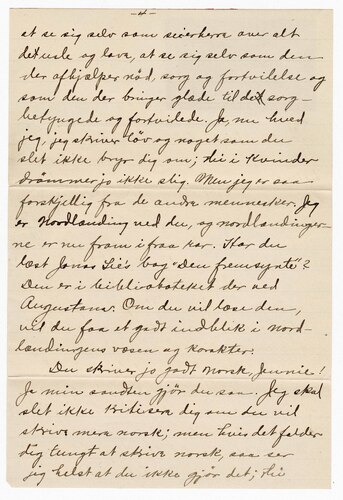 -4-
at se sig selv som seierherre over alt
det usle og lave, at se sig selv som den
der afhjælper nød, sorg og fortvilelse og
som den der bringer glæde til det sorg-
befyngede og fortvilede. Ja, nu hved
jeg, jeg skriver löv og noget som du
slet ikke bryr dig om, thi i Kvinder
drömmer jo ikke slig. Men jeg er saa
forskjellig fra de andre mennesker, Jeg
er Nordlanding ved du, og nordlandinger-
ne er nu fram ifraa kar. Har du
læst Jonas Lie's bog "Den fremsynte"?
Den er i biblioboteket der ved
Augustana. Om du vil læse den,
vil du faa et godt indblik i Nord-
landingens væsen og karakter.
Du skriver jo godt Norsk, Jennie!
Ja min sandten gjör du saa. Jeg skal
slet ikke kritisera dig om du vil
skrive mera norsk; men hvis det falder
dig tungt at skrive norsk, saa ser
jeg helst at du ikke gjör det; thi